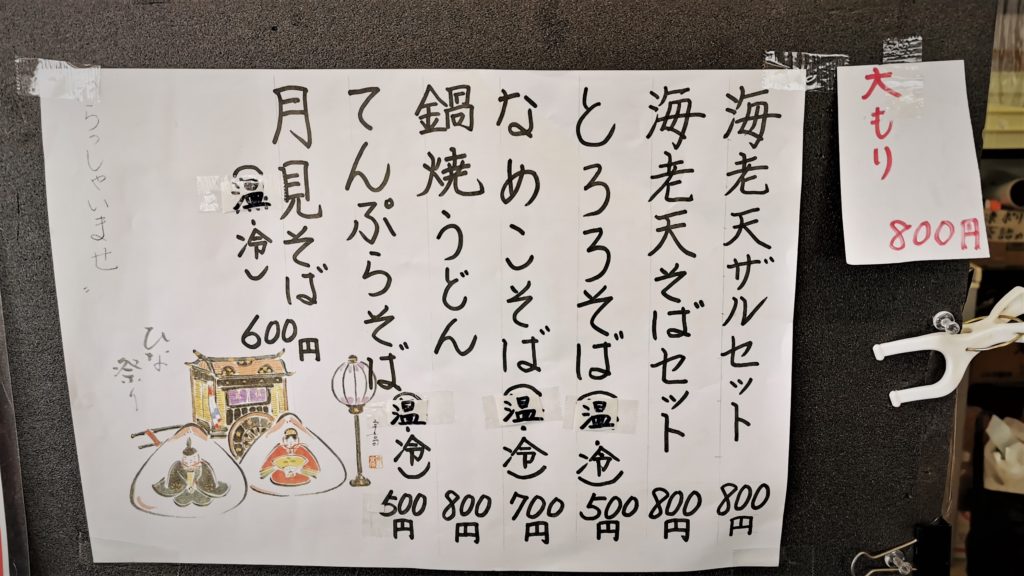 海老天ザルセット 800円
海老天そばセット 800円
とろろそば(温・冷) 500円
なめこそば(温・冷) 700円
鍋焼うどん 800円
てんぷらそば(温・冷) 500円
月見そば(温・冷) 600円
らっしゃいませ
ひな祭り
大もり 800円